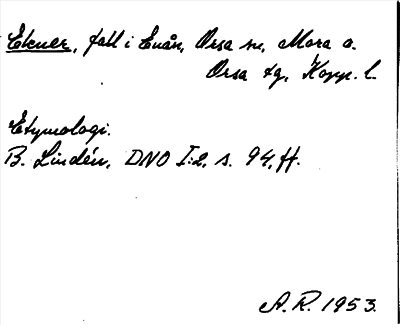 Ekuer, fall i Enån, Orsa sn, Mora o.
Orsa tg, Kopp. l.
Etymologi.
B. Lindén, DNO I:2, s. 94, ff.
A. R. 1953.